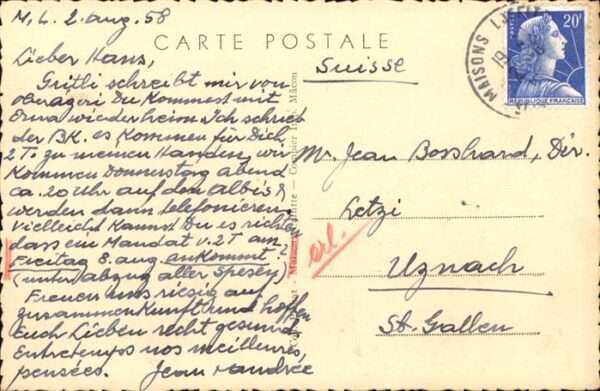 M.L. 2. aug. 58
CARTE POSTALE
Lieber Hans,
Gritli schreibt mir von
Oberägeri Du kommest mit
Erna wieder heim. Ich schrieb
der BK. es kommen für Dich
2 T. zu meinen Handen, wir
kommen Donnerstag abend
ca. 20 Uhr auf den Albis &
werden dann telefonieren,
vielleicht kannst Du es richten
dass ein Mandat v. 2 T am
Freitag 8. aug. ankommt?
(unter abzug aller Spesen)
Freuen uns riesig auf
zusammenkunft und hoffen
Euch Lieben recht gesund
Entretemps nos meilleures
pensées. Jean Mandrée
Suisse
Mr. Jean Bosshard, Dir.
Letzi
Uznach
St. Gallen
erl.
POSTES
20F
REPUBLIQUE FRANÇAISE
MAISONS
Mâcon